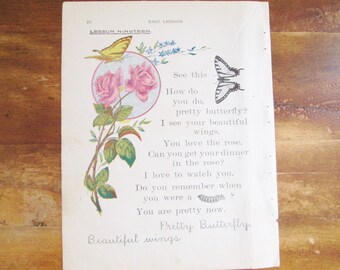 EASY LESSONS
LESSON NINETEEN.
See this
How do
you do,
pretty butterfly?
I see your beautiful
wings.
You love the rose.
Can you get your dinner
in the rose?
I love to watch you.
Do you remember when
you were a
You are pretty now.
Pretty Butterfly
Beautiful wings